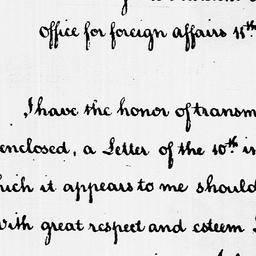 office for foreign affairs 15th
I have the honor of transm
enclosed, a Letter of the 10th in
hich it appears to me should
with great respect and esteem